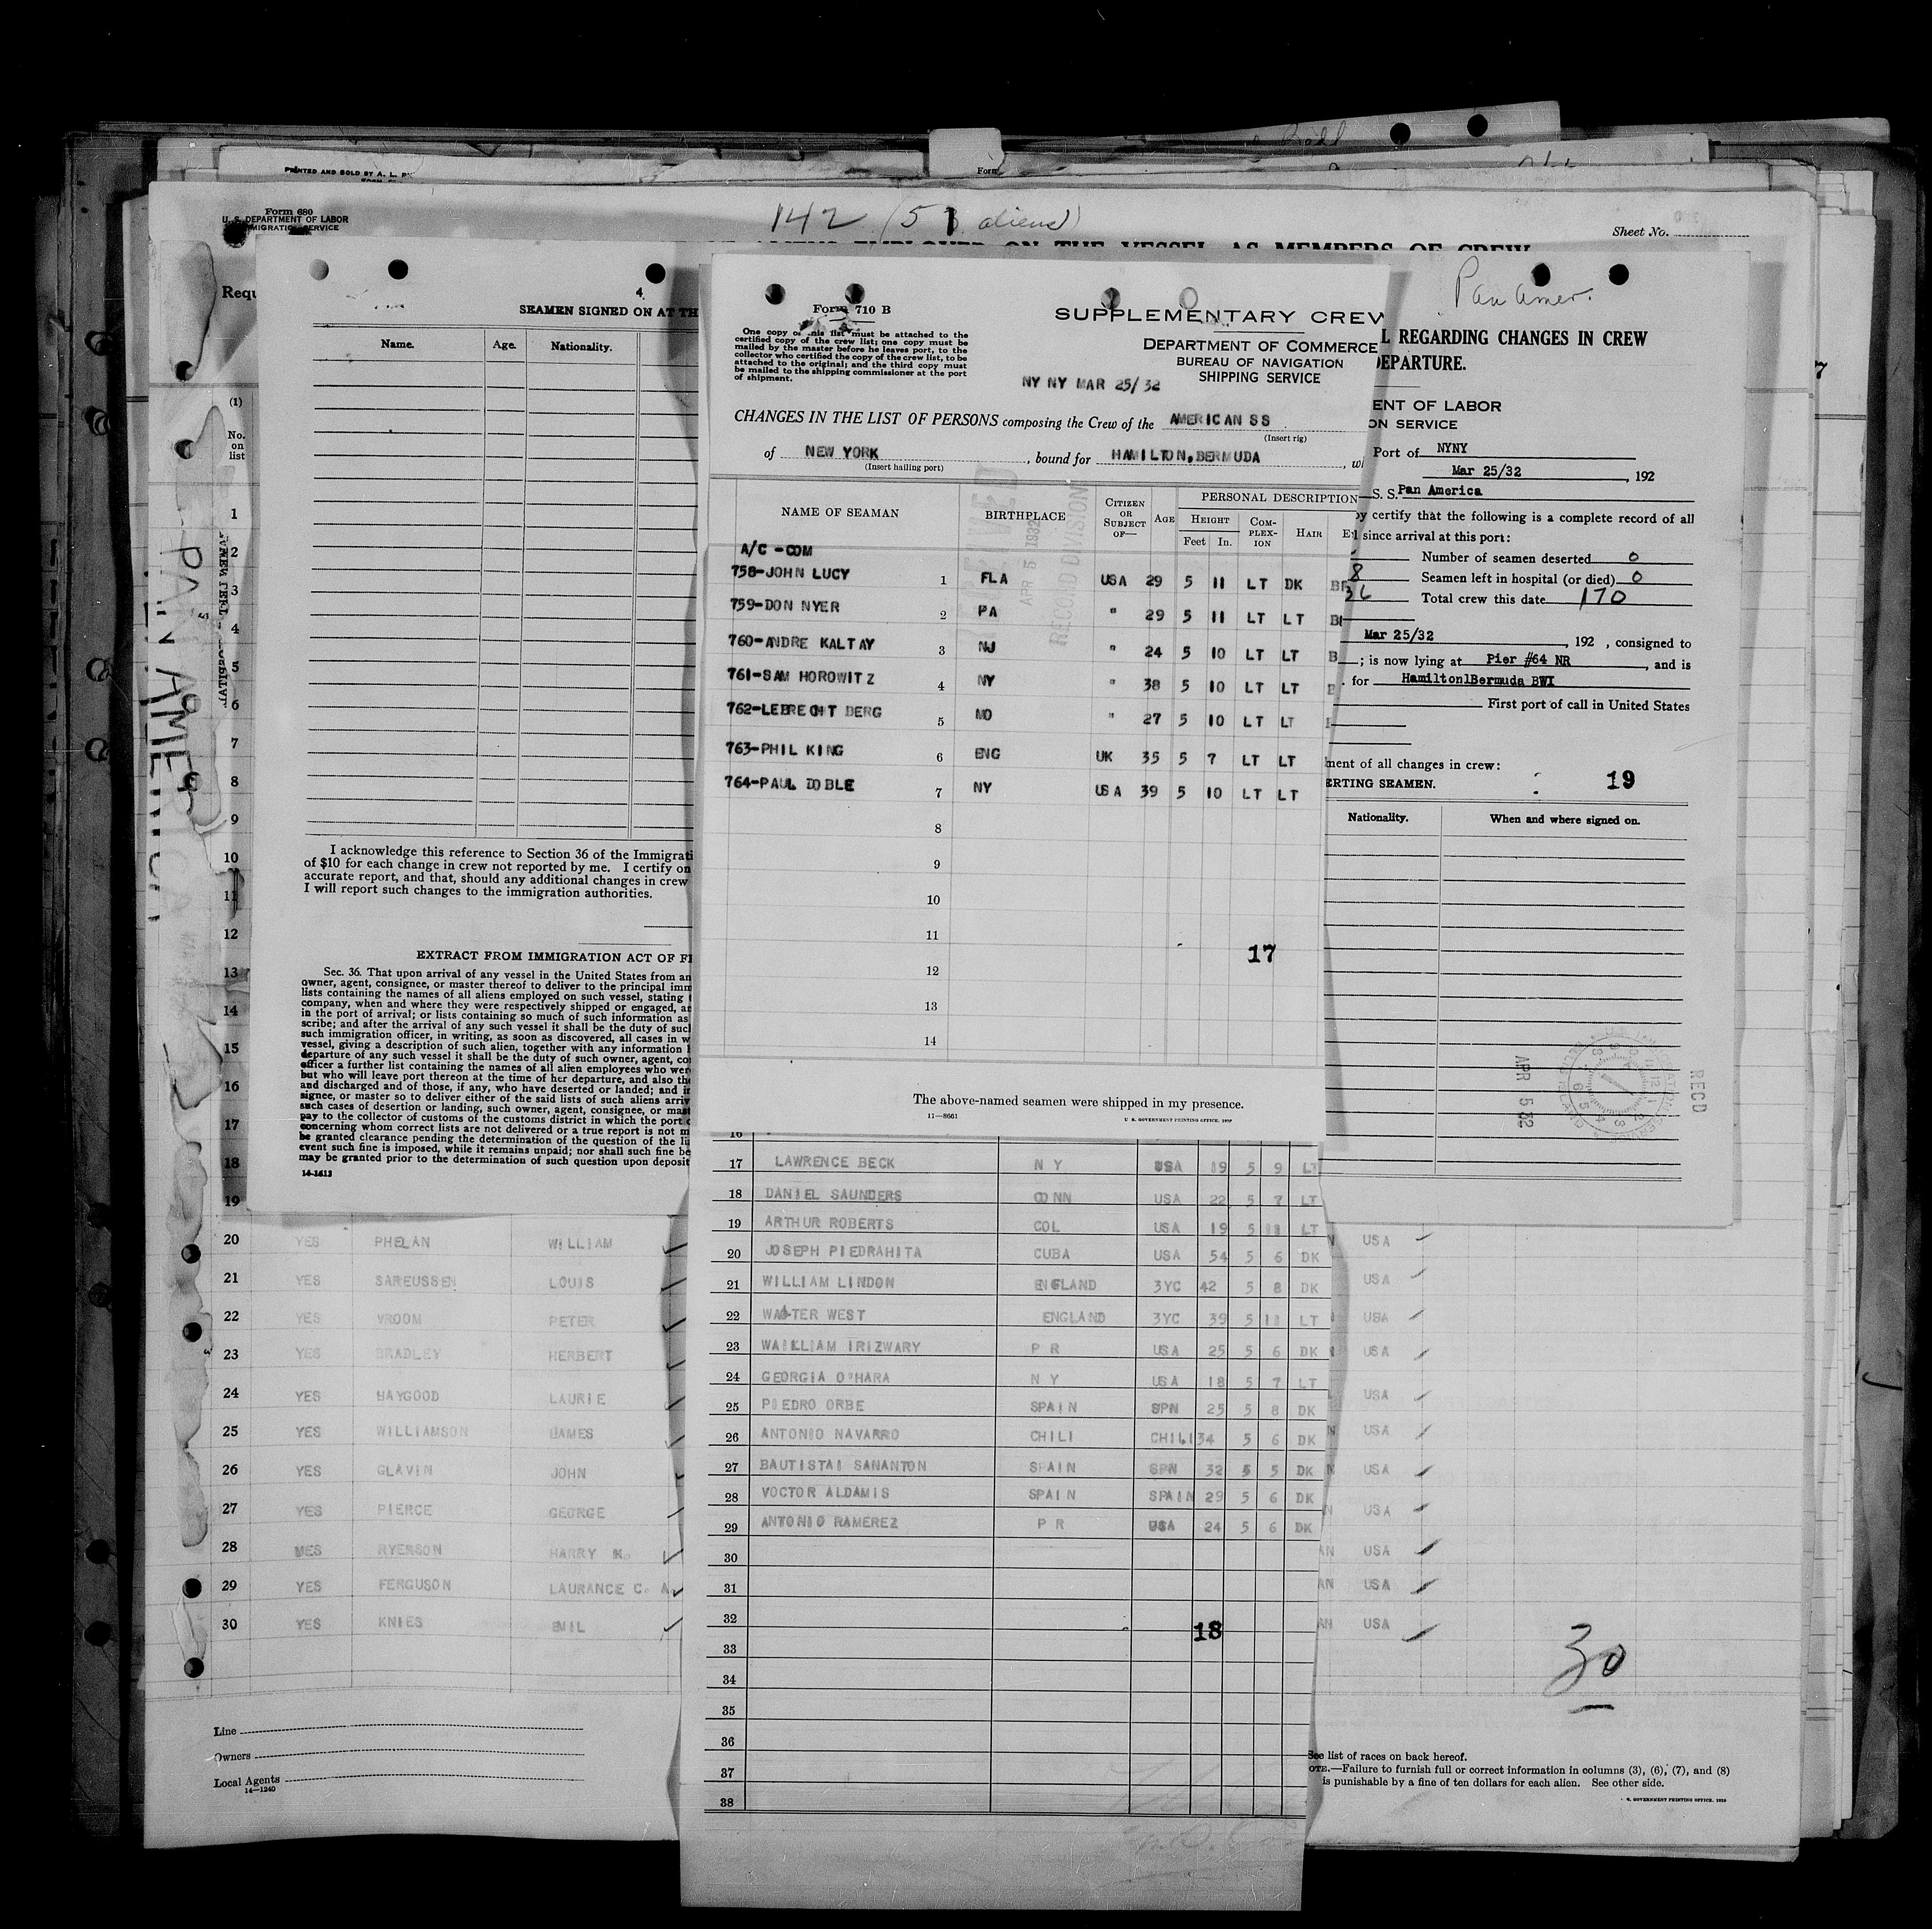 PRINTED AND SOLD BY A. L.
Form
Form 680
U. S. DEPARTMENT OF LABOR
IMMIGRATION SERVICE
142 (51 aliens)
Sheet No.
ALIENS EMPLOYED ON THE VESSEL AS MEMBERS OF CREW
Requ
(1)
No. on list
PAN AMERICA
4
SEAMEN SIGNED ON AT TH
Name. Age. Nationality.
I acknowledge this reference to Section 36 of the Immigrati
of $10 for each change in crew not reported by me. I certify on
accurate report, and that, should any additional changes in crew
I will report such changes to the immigration authorities.
EXTRACT FROM IMMIGRATION ACT OF FE
Sec. 36. That upon arrival of any vessel in the United States from an
owner, agent, consignee, or master thereof to deliver to the principal imm
lists containing the names of all aliens employed on such vessel, stating
company, when and where they were respectively shipped or engaged, a
in the port of arrival; or lists containing so much of such information as
scribe; and after the arrival of any such vessel it shall be the duty of suc
such immigration officer, in writing, as soon as discovered, all cases in w
vessel, giving a description of such alien, together with any information
departure of any such vessel it shall be the duty of such owner, agent, co
officer a further list containing the names of all alien employees who wer
but who will leave port thereon at the time of her departure, and also th
and discharged and of those, if any, who have deserted or landed; and i
signee, or master so to deliver either of the said lists of such aliens arriv
such cases of desertion or landing, such owner, agent, consignee, or mas
pay to the collector of customs of the customs district in which the port
concerning whom correct lists are not delivered or a true report is not m
be granted clearance pending the determination of the question of the li
event such fine is imposed, while it remains unpaid; nor shall such fine be
may be granted prior to the determination of such question upon deposit
14-1613
1
2
3
4
5
6
7
8
9
10
11
12
13
14
15
16
17
18
19
Form 710 B
One copy of this list must be attached to the
certified copy of the crew list; one copy must be
mailed by the master before he leaves port, to the
collector who certified the copy of the crew list, to be
attached to the original; and the third copy must
be mailed to the shipping commissioner at the port
of shipment.
SUPPLEMENTARY CREW
DEPARTMENT OF COMMERCE
BUREAU OF NAVIGATION
SHIPPING SERVICE
NY NY MAR 25/32
CHANGES IN THE LIST OF PERSONS composing the Crew of the AMERICAN SS
(Insert rig)
of NEW YORK, bound for HAMILTON, BERMUDA, wi
(Insert hailing port)
RECEIVED
APR 5 1932
RECORD DIVISION
NAME OF SEAMAN BIRTHPLACE CITIZEN OR SUBJECT OF— AGE PERSONAL DESCRIPTION
HEIGHT Feet In. COMPLEXION HAIR E
A/C -COM
758-JOHN LUCY 1 FLA USA 29 5 11 LT DK
759-DON NYER 2 PA " 29 5 11 LT LT
760-ANDRE KALTAY 3 NJ " 24 5 10 LT LT B
761-SAM HOROWITZ 4 NY " 38 5 10 LT LT
762-LEBRECHT DERG 5 MO " 27 5 10 LT LT
763-PHIL KING 6 ENG UK 35 5 7 LT LT
764-PAUL DOBLE 7 NY USA 39 5 10 LT LT
8
9
10
11
12
13
14
17
The above-named seamen were shipped in my presence.
11—8661
U. S. GOVERNMENT PRINTING OFFICE.
16
17 LAWRENCE BECK N Y USA 19 5 9 LT
18 DANIEL SAUNDERS CONN USA 22 5 7 LT
19 ARTHUR ROBERTS COL USA 19 5 11 LT
20 JOSEPH PIEDRAHITA CUBA USA 54 5 6 DK
21 WILLIAM LINDON ENGLAND 3YC 42 5 8 DK
22 WALTER WEST ENGLAND 3YC 39 5 11 LT
23 WAILLIAM IRIZWARY P R USA 25 5 6 DK
24 GEORGIA O'HARA N Y USA 18 5 7 LT
25 PIEDRO ORBE SPAIN SPN 25 5 8 DK
26 ANTONIO NAVARRO CHILI CHILI 34 5 6 DK
27 BAUTISTAI SANANTON SPAIN SPN 32 5 5 DK
28 VOCTOR ALDAMIS SPAIN SPAIN 29 5 6 DK
29 ANTONIO RAMEREZ P R USA 24 5 6 DK
30
31
32
18
33
34
35
36
37
38
Pan Amer.
L REGARDING CHANGES IN CREW
DEPARTURE.
ENT OF LABOR
ON SERVICE
Port of NYNY
Mar 25/32, 192
S. S. Pan America
by certify that the following is a complete record of all
since arrival at this port:
Number of seamen deserted 0
8 Seamen left in hospital (or died) 0
36 Total crew this date 170
Mar 25/32, 192 , consigned to
; is now lying at Pier #64 NR, and is
for Hamilton1Bermuda BWI
First port of call in United States
ment of all changes in crew:
ERTING SEAMEN.
19
Nationality. When and where signed on.
APR 5 32
RECD
20 YES PHELAN WILLIAM USA
21 YES SAREUSSEN LOUIS USA
22 YES VROOM PETER USA
23 YES BRADLEY HERBERT USA
24 YES HAYGOOD LAURIE USA
25 YES WILLIAMSON JAMES USA
26 YES GLAVIN JOHN USA
27 YES PIERCE GEORGE USA
28 MES RYERSON HARRY M. USA
29 YES FERGUSON LAURANCE C. A. USA
30 YES KNIES EMIL USA
30
Line
Owners
Local Agents
14—1240
See list of races on back hereof.
OTE.—Failure to furnish full or correct information in columns (3), (6), (7), and (8)
is punishable by a fine of ten dollars for each alien. See other side.
GOVERNMENT PRINTING OFFICE.